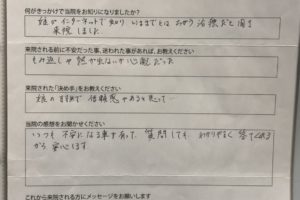 何がきっかけで当院をお知りになりましたか?
娘がインターネットで知り いままでとはちがう治療だと聞き
来院しました
来院される前に不安だった事、迷われた事があれば、お教えください
もみ返しや 熱が出ないか心配だった
来院された「決め手」をお教えください
娘のすすめで 信頼感があると思って
当院の感想をお聞かせください
いつも不安になる事が有って、質問しても、わかりやすく 答てくれる
から 安心します
これから来院される方にメッセージをお願いします